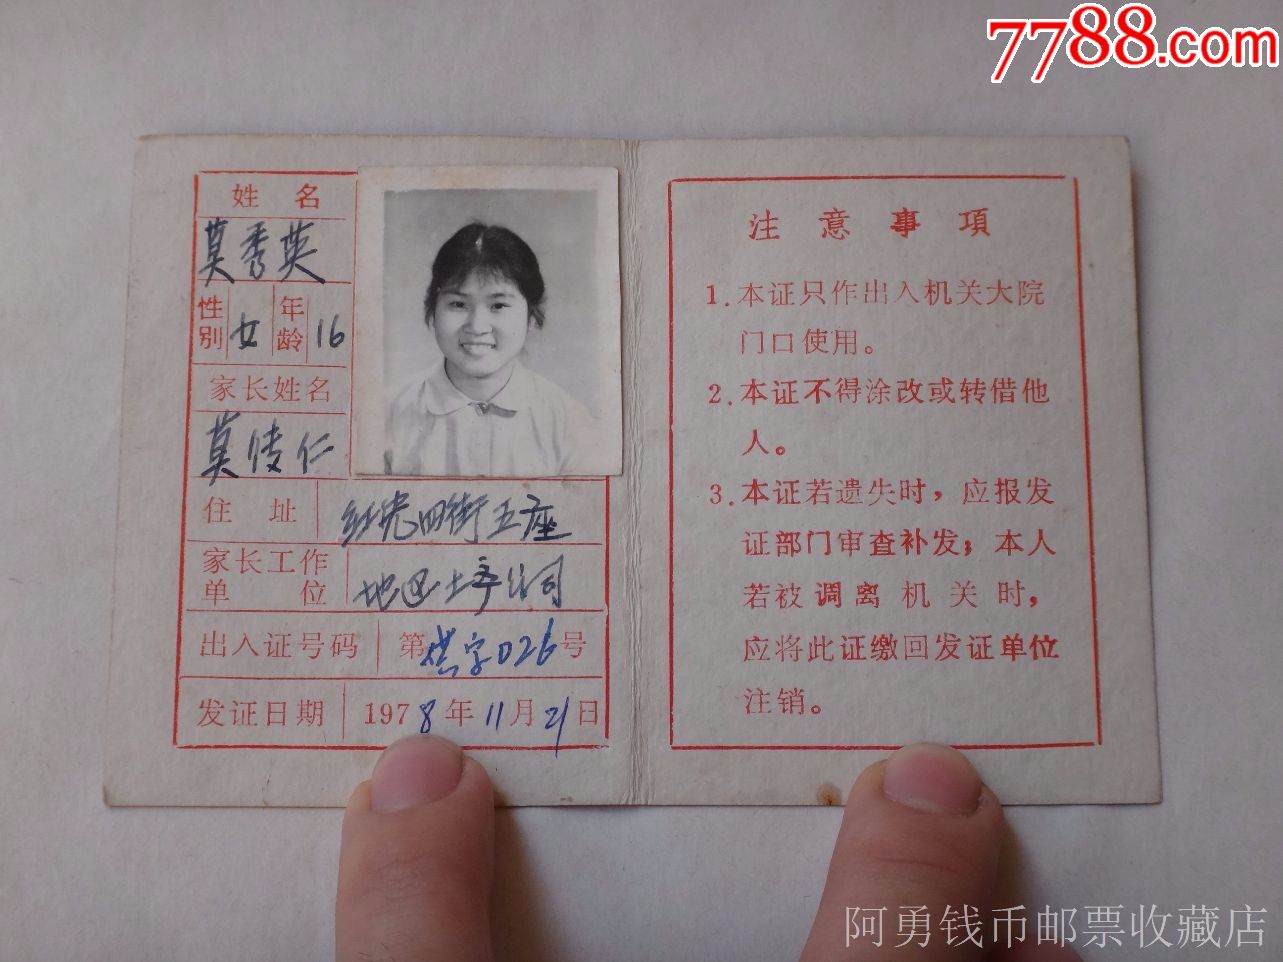 7788.com
姓 名
莫秀英
性别 女 年龄 16
家长姓名
莫传仁
住 址 红光四街五座
家长工作
单 位 地区土产公司
出入证号码 第 字026号
发证日期 1978年11月21日
注 意 事 項
1.本证只作出入机关大院
门口使用。
2.本证不得涂改或转借他
人。
3.本证若遗失时，应报发
证部门审查补发；本人
若被调离机关时，
应将此证缴回发证单位
注销。
阿勇钱币邮票收藏店